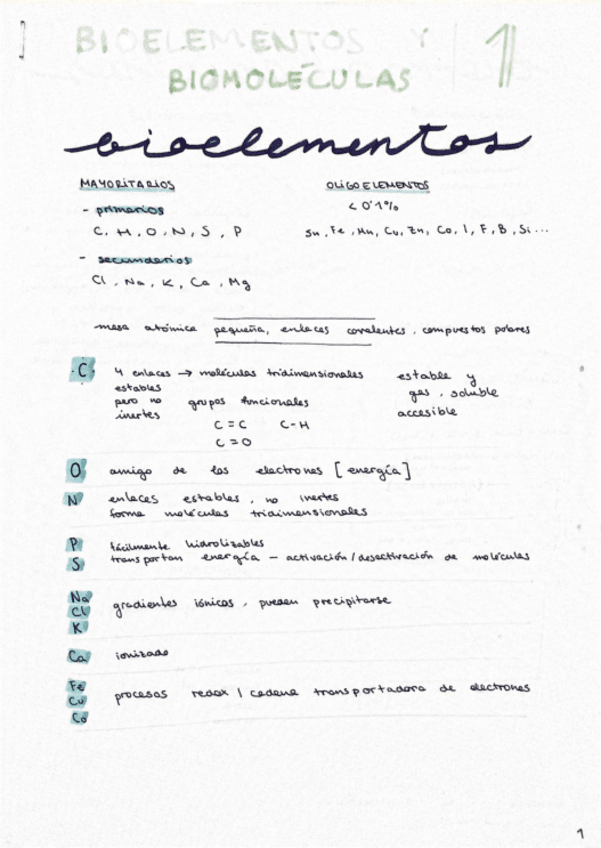 BIOELEMENTOS Y 1
BIOMOLÉCULAS
bioelementos
MAYORITARIOS
- primarios
C, H, O, N, S, P
- secundarios
Cl, Na, K, Ca, Mg
OLIGOELEMENTOS
< 0'1%
Sn, Fe, Mn, Cu, Zn, Co, I, F, B, Si...
masa atómica pequeña, enlaces covalentes, compuestos polares
C 4 enlaces → moléculas tridimensionales
estables
pero no
inertes
grupos funcionales
C = C C-H
C = O
estable y
gas, soluble
accesible
O amigo de los electrones [energía]
N enlaces estables, no inertes
forma moléculas tridimensionales
P fácilmente hidrolizables
S transportan energía - activación/desactivación de moléculas
Na
Cl gradientes iónicos, pueden precipitarse
K
Ca ionizado
Fe
Cu procesos redox / cadena transportadora de electrones
Co
1